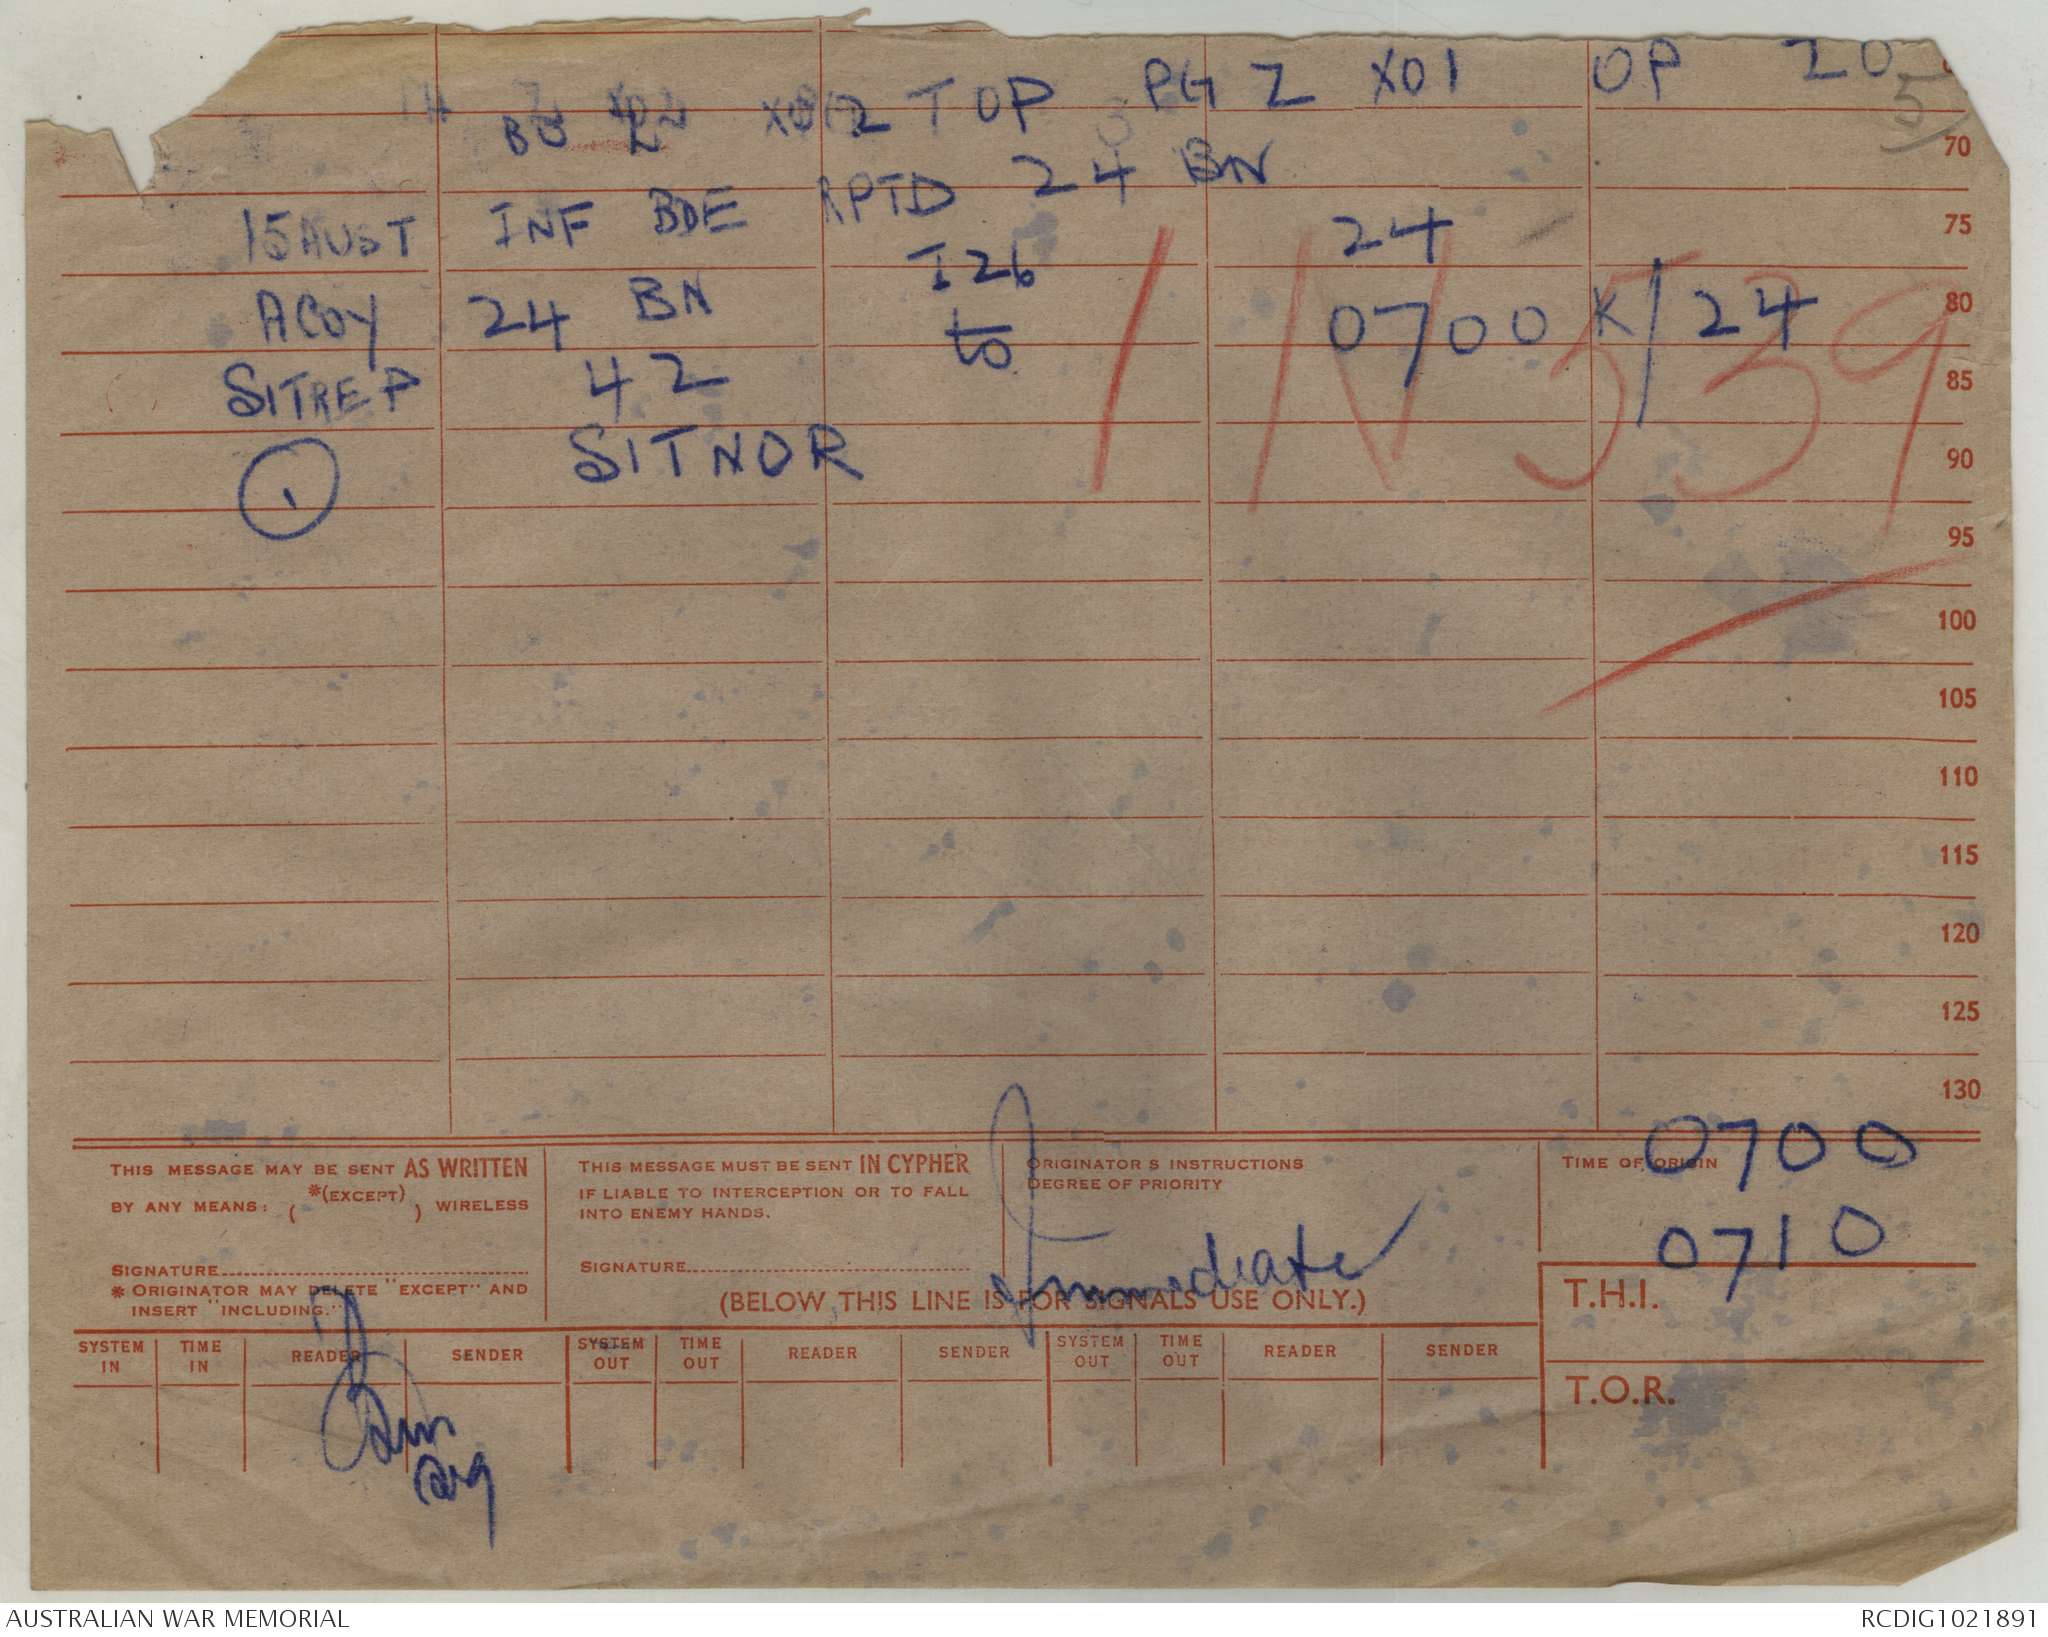 TOP PG Z X01 OP 20
5
70
15 AUST INF BDE RPTD 24 BN
75
A COY 24 BN I26 24
80
SITREP 42 to 0700 K/24
85
1 SITNOR
90
1 IN 539
95
100
105
110
115
120
125
130
THIS MESSAGE MAY BE SENT AS WRITTEN
BY ANY MEANS: ( *(EXCEPT) ) WIRELESS
SIGNATURE
* ORIGINATOR MAY DELETE "EXCEPT" AND
INSERT "INCLUDING."
THIS MESSAGE MUST BE SENT IN CYPHER
IF LIABLE TO INTERCEPTION OR TO FALL
INTO ENEMY HANDS.
SIGNATURE
ORIGINATOR S INSTRUCTIONS
DEGREE OF PRIORITY
Immediate
TIME OF ORIGIN 0700
0710
(BELOW THIS LINE IS FOR SIGNALS USE ONLY.)
T.H.I.
T.O.R.
SYSTEM IN TIME IN READER SENDER SYSTEM OUT TIME OUT READER SENDER SYSTEM OUT TIME OUT READER SENDER
AUSTRALIAN WAR MEMORIAL RCDIG1021891